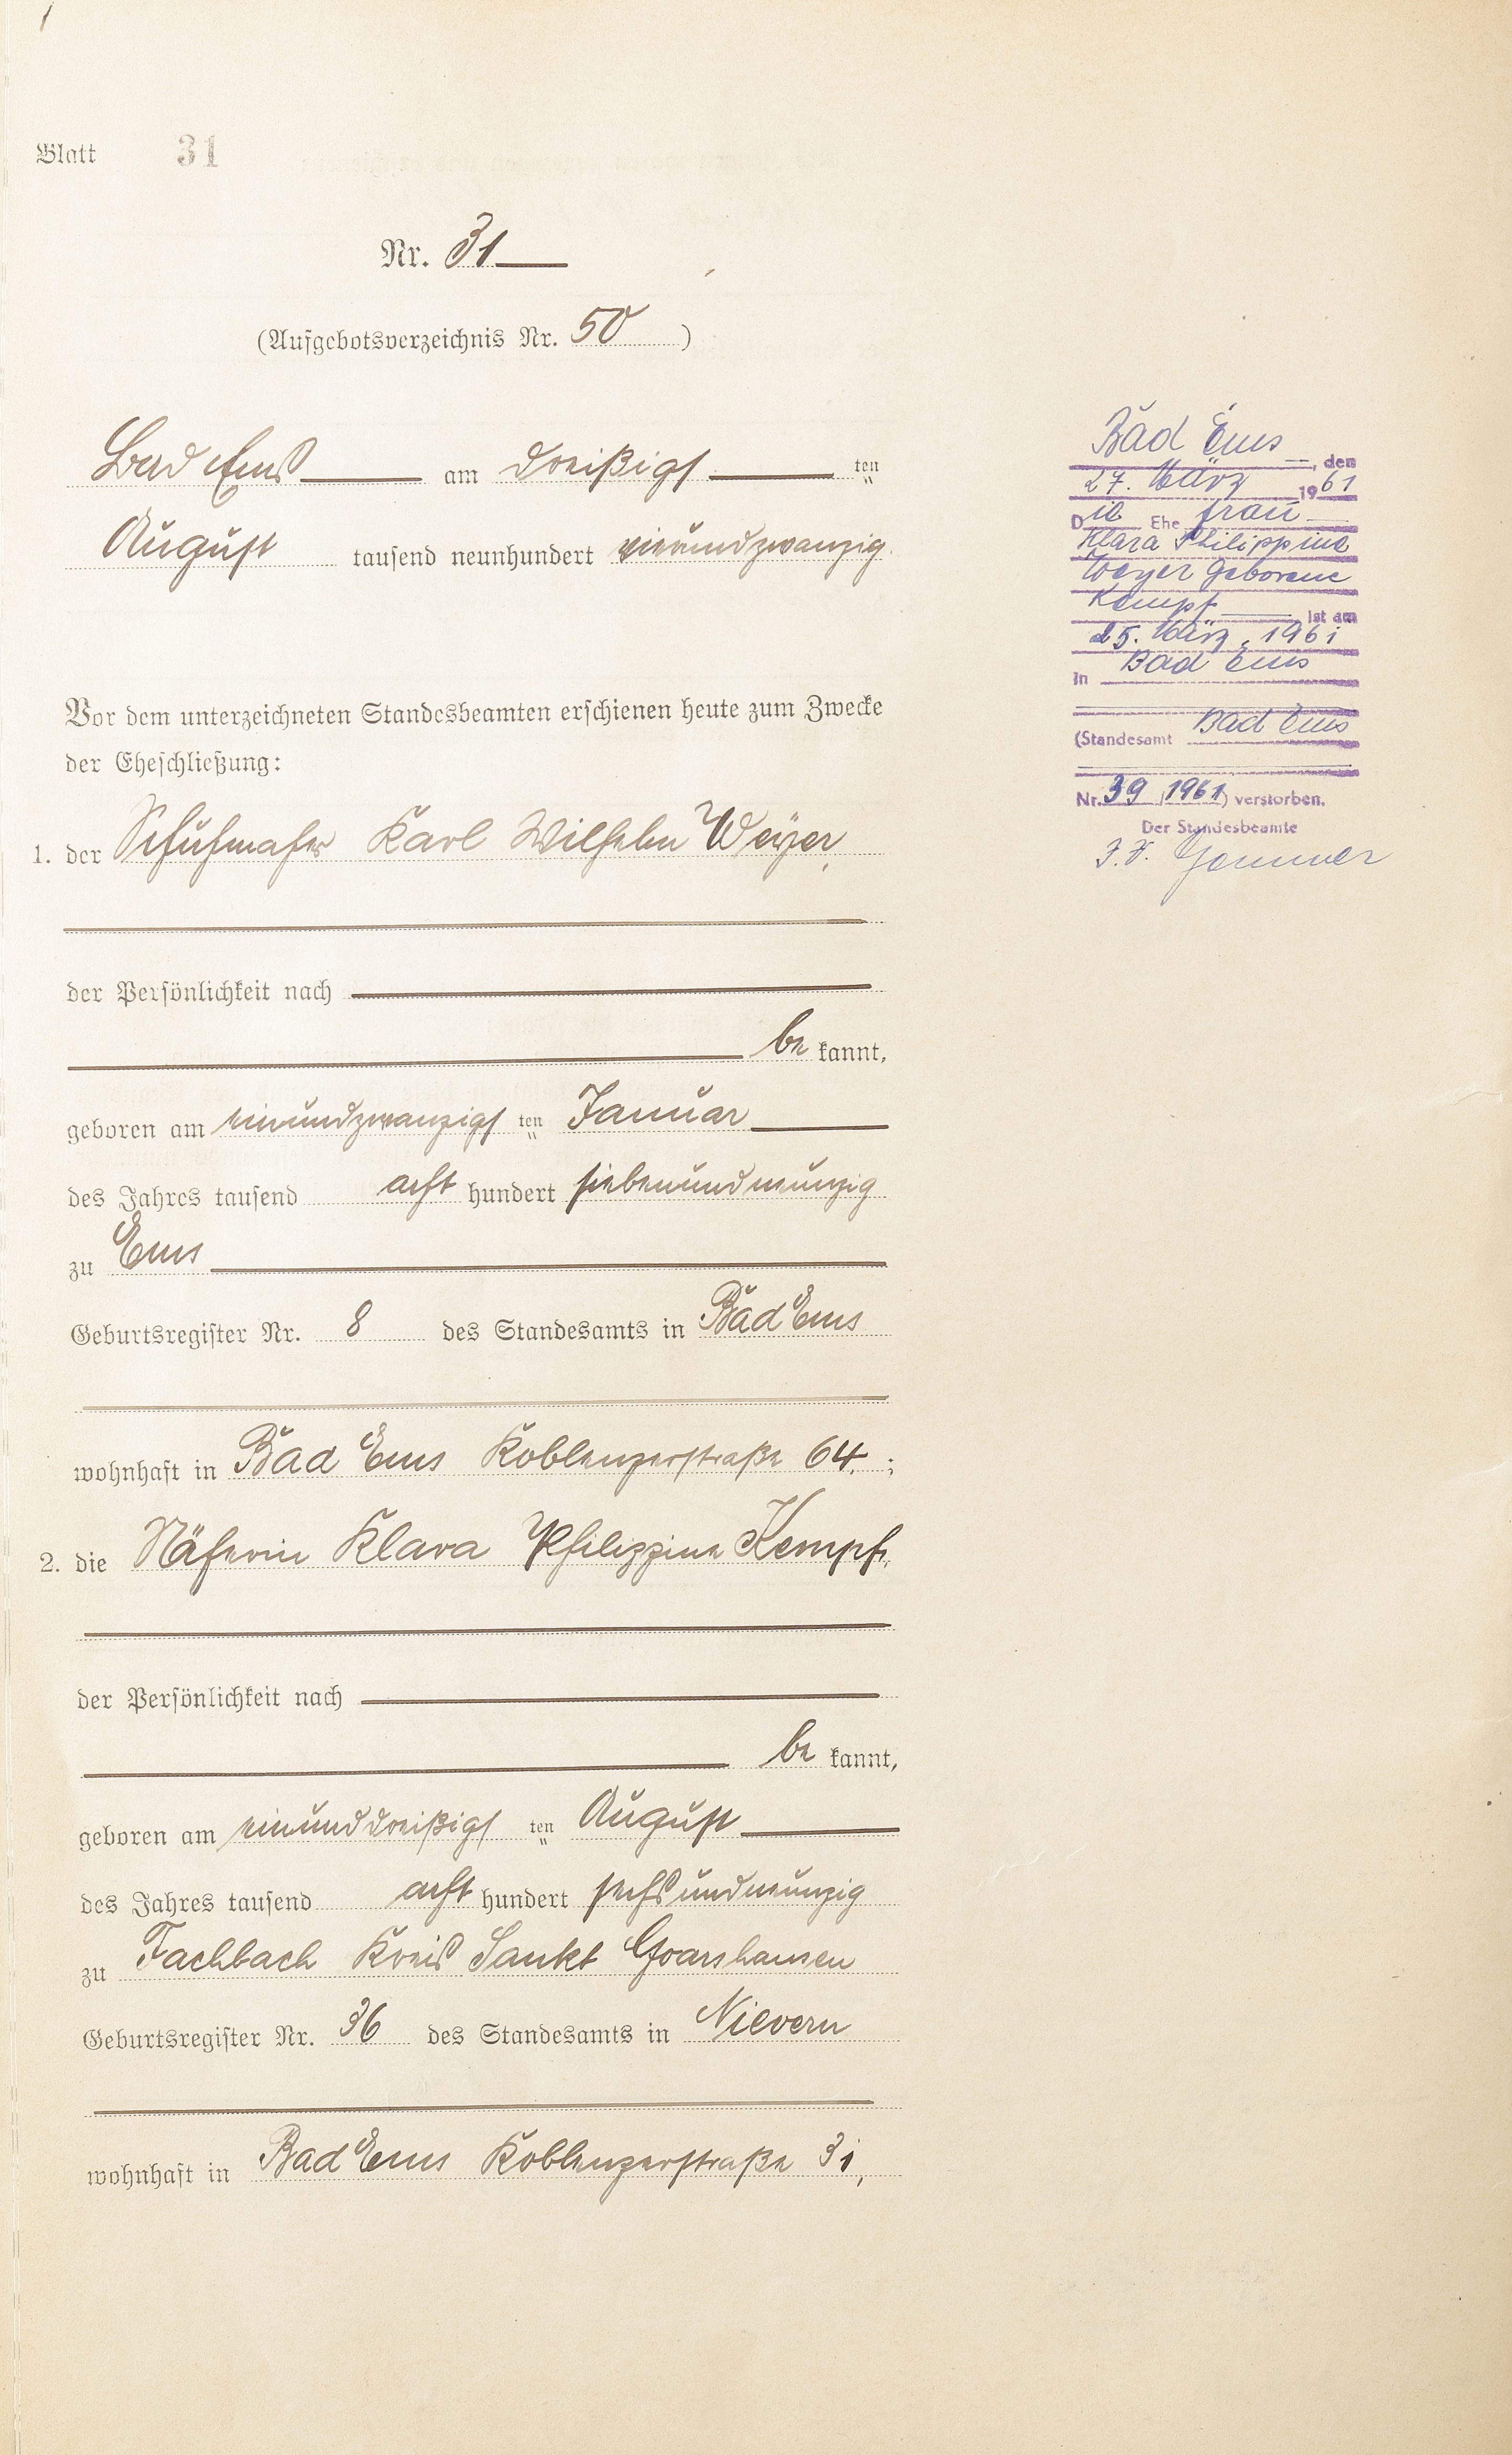 Blatt 31
Nr. 31
(Aufgebotsverzeichnis Nr. 50)
Bad Ems am dreißigsten
August tausend neunhundert vierundzwanzig.
Vor dem unterzeichneten Standesbeamten erschienen heute zum Zwecke
der Eheschließung:
1. der Schuhmacher Karl Wilhelm Weyer,
der Persönlichkeit nach
bekannt,
geboren am einundzwanzigsten Januar
des Jahres tausend acht hundert siebenundneunzig
zu Ems
Geburtsregister Nr. 8 des Standesamts in Bad Ems
wohnhaft in Bad Ems Koblenzerstraße 64.;
2. die Näherin Klara Philippine Kempf,
der Persönlichkeit nach
bekannt,
geboren am einunddreißigsten August
des Jahres tausend acht hundert sechsundneunzig
zu Fachbach Kreis Sankt Goarshausen
Geburtsregister Nr. 36 des Standesamts in Nievern
wohnhaft in Bad Ems Koblenzerstraße 31,
Bad Ems, den
27. März 1961
Die Ehefrau
Klara Philippine
Weyer geborene
Kempf ist am
25. März 1961
in Bad Ems
(Standesamt Bad Ems
Nr. 39/1961) verstorben.
Der Standesbeamte
I.V.